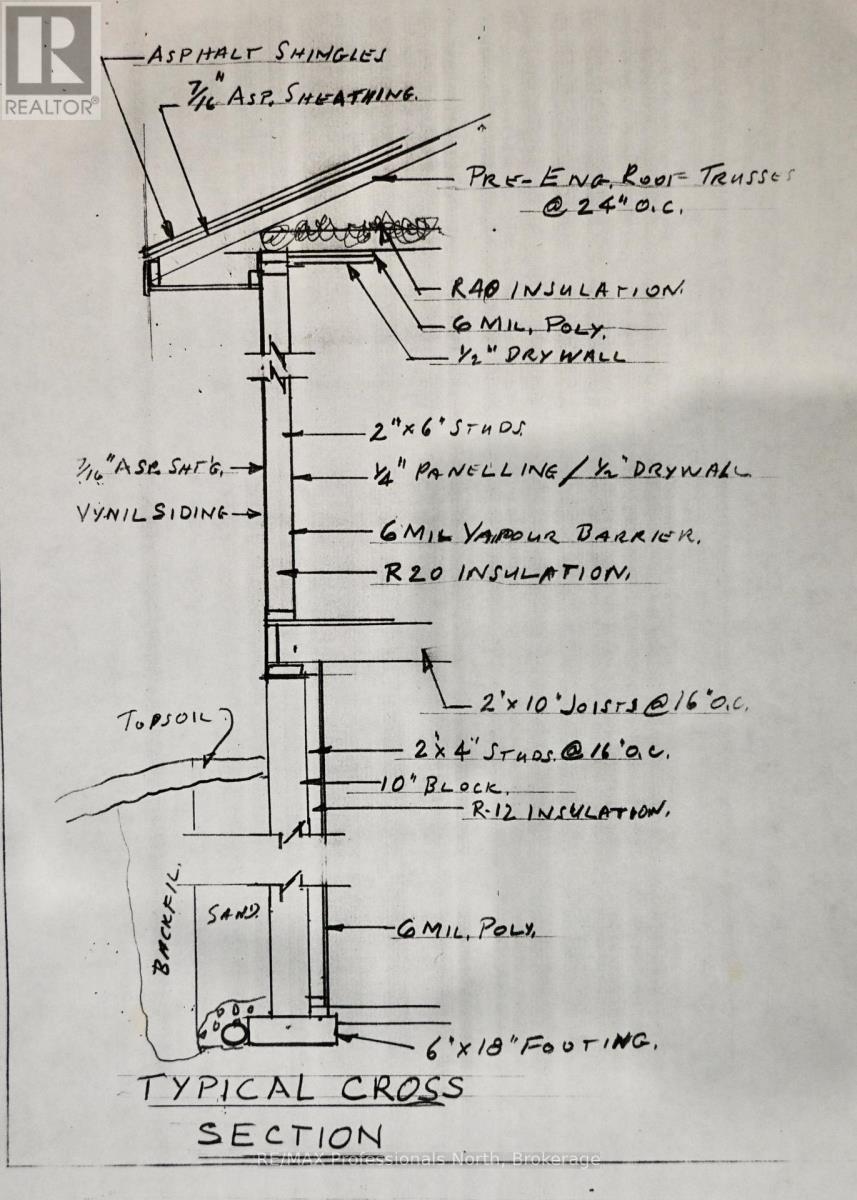 REALTOR®
ASPHALT SHINGLES
7/16" ASP. SHEATHING.
PRE-ENG. ROOF TRUSSES
@ 24" O.C.
R40 INSULATION.
6 MIL. POLY.
1/2" DRYWALL
2"x6" STUDS.
7/16" ASP. SHT'G.
1/4" PANELLING / 1/2" DRYWALL
VYNIL SIDING
6 MIL VAPOUR BARRIER.
R20 INSULATION.
2"x10" JOISTS @ 16" O.C.
TOPSOIL
2"x4" STUDS. @ 16" O.C.
10" BLOCK.
R-12 INSULATION.
BACKFIL.
SAND.
6 MIL. POLY.
6"x18" FOOTING.
TYPICAL CROSS
SECTION
RE/MAX Professionals North, Brokerage